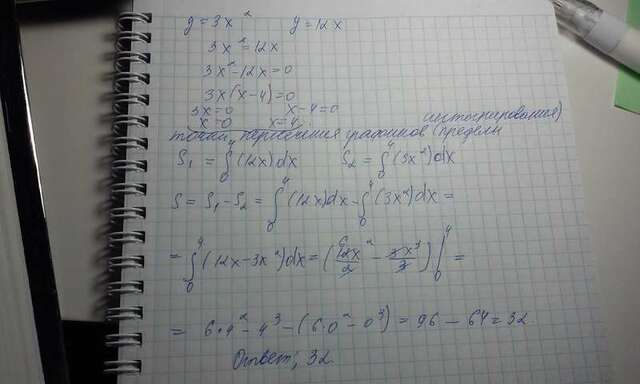 y = 3x² y = 12x
3x² = 12x
3x² - 12x = 0
3x(x - 4) = 0
3x = 0 x - 4 = 0
x = 0 x = 4.
точки пересечения графиков (пределы интегрирования)
S₁ = ∫₀⁴ (12x)dx S₂ = ∫₀⁴ (3x²)dx
S = S₁ - S₂ = ∫₀⁴ (12x)dx - ∫₀⁴ (3x²)dx =
= ∫₀⁴ (12x - 3x²)dx = (6 12x²/2 - 3x³/3) |₀⁴ =
= 6·4² - 4³ - (6·0² - 0³) = 96 - 64 = 32
Ответ: 32.